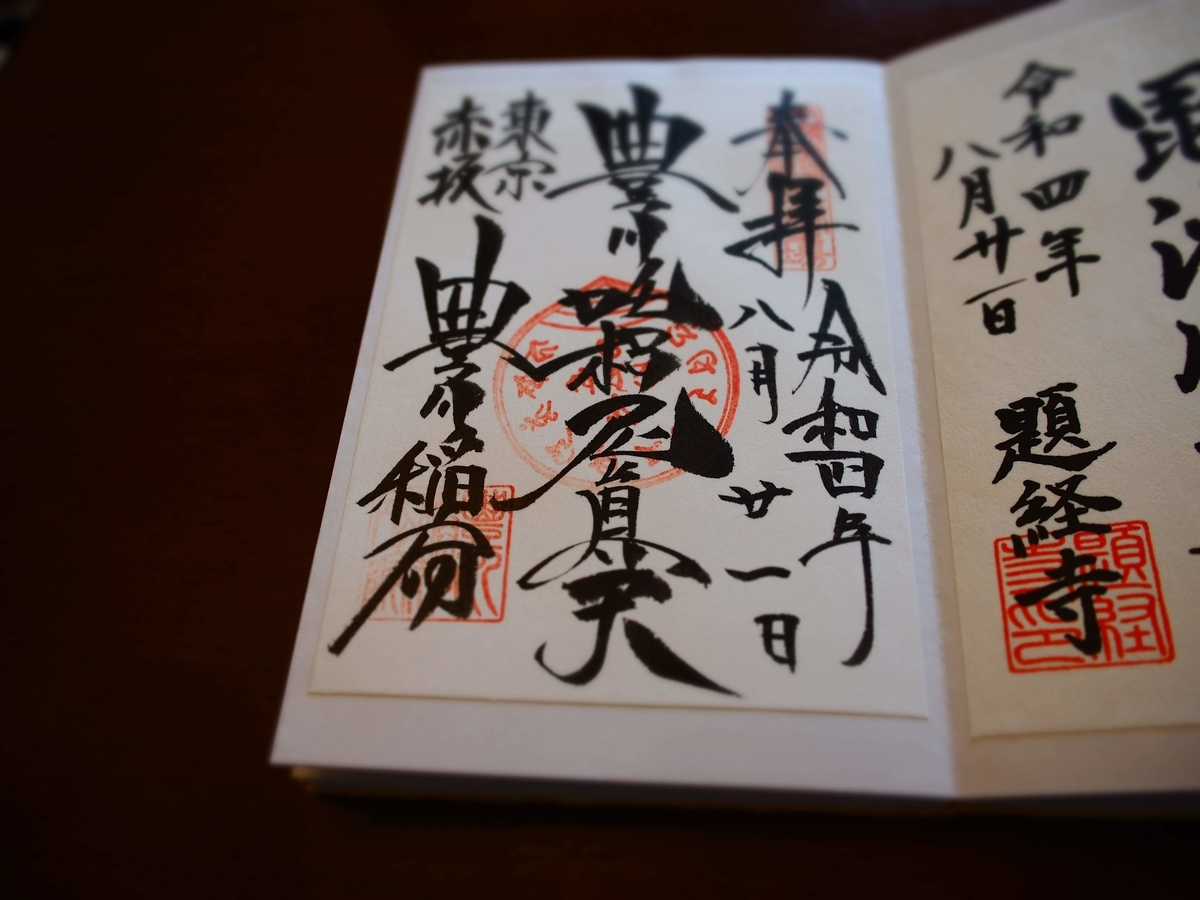 令和四年
八月廿一日
題経寺
奉拝
令和四年
八月廿一日
豊川吒枳尼眞天
東京
赤坂
豊川稲荷